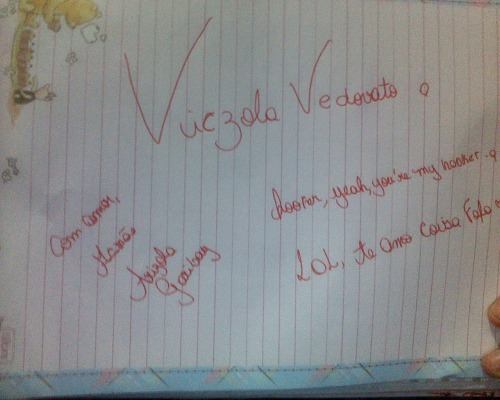 Viiczola Vedovato
hooker, yeah, you're my hooker.
LOL, te amo coisa fofa
Com amor,
Angela